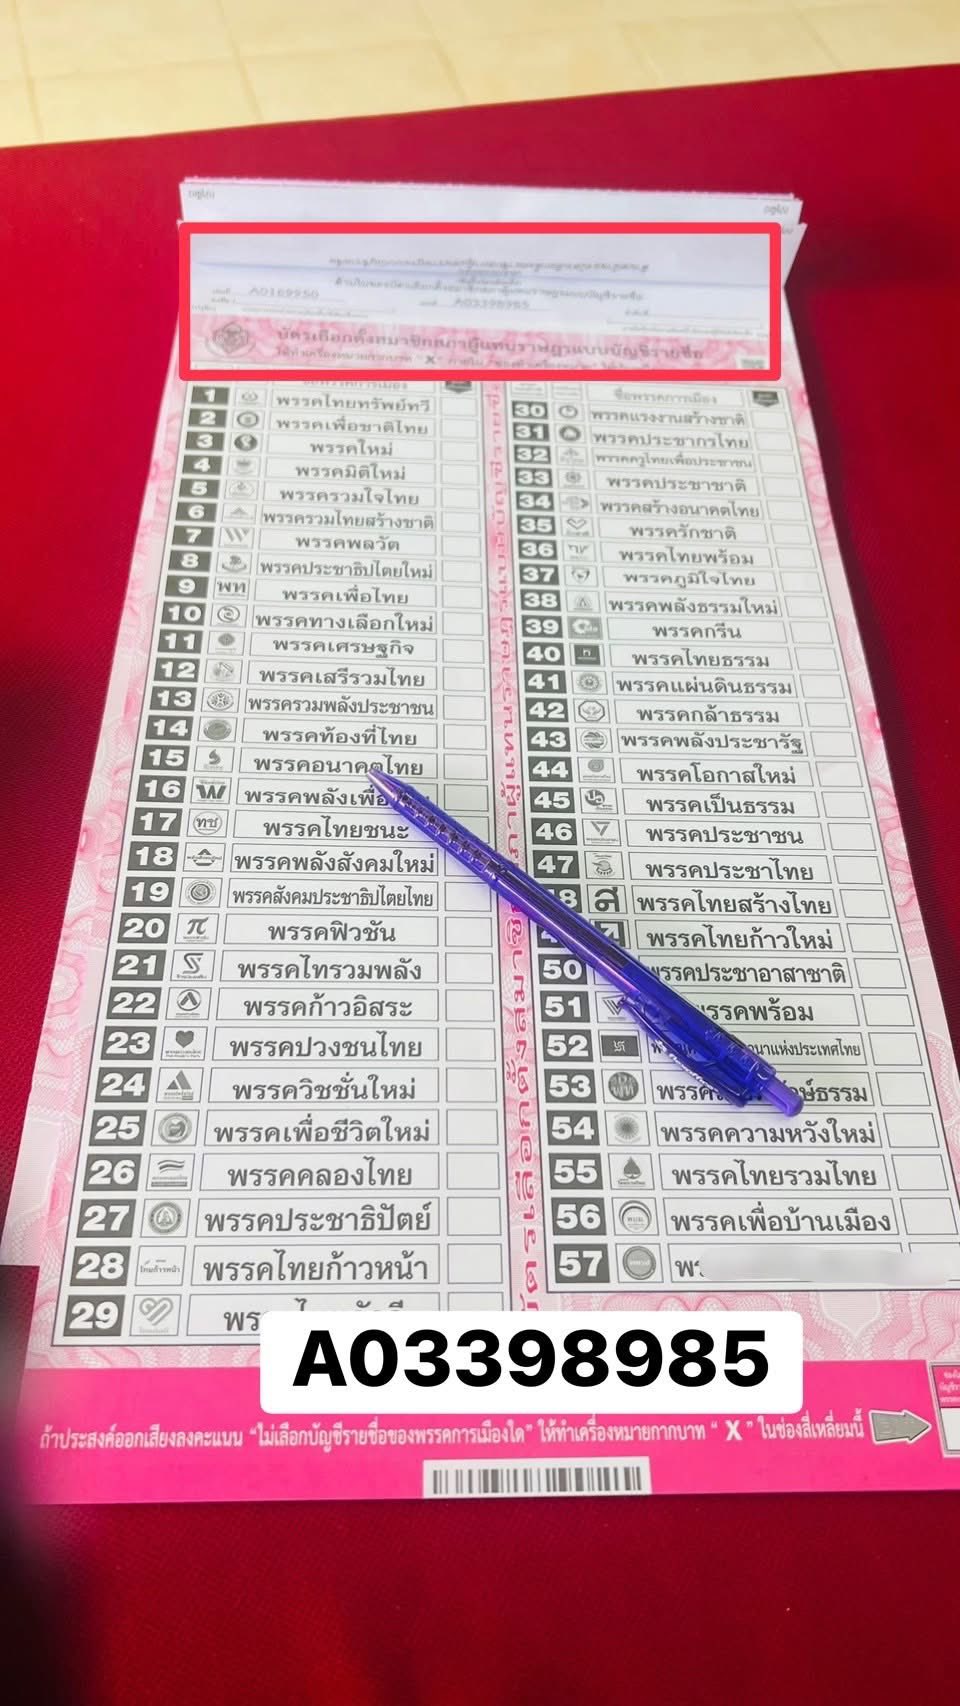 A0169950
A03398985
บัตรเลือกตั้งสมาชิกสภาผู้แทนราษฎรแบบบัญชีรายชื่อ
ชื่อพรรคการเมือง
1 พรรคไทยทรัพย์ทวี
2 พรรคเพื่อชาติไทย
3 พรรคใหม่
4 พรรคมิติใหม่
5 พรรครวมใจไทย
6 พรรครวมไทยสร้างชาติ
7 พรรคพลวัต
8 พรรคประชาธิปไตยใหม่
9 พท พรรคเพื่อไทย
10 พรรคทางเลือกใหม่
11 พรรคเศรษฐกิจ
12 พรรคเสรีรวมไทย
13 พรรครวมพลังประชาชน
14 พรรคท้องที่ไทย
15 พรรคอนาคตไทย
16 พรรคพลังเพื่อ
17 ทช พรรคไทยชนะ
18 พรรคพลังสังคมใหม่
19 พรรคสังคมประชาธิปไตยไทย
20 พรรคฟิวชัน
21 พรรคไทรวมพลัง
22 พรรคก้าวอิสระ
23 พรรคปวงชนไทย
24 พรรควิชชั่นใหม่
25 พรรคเพื่อชีวิตใหม่
26 พรรคคลองไทย
27 พรรคประชาธิปัตย์
28 พรรคไทยก้าวหน้า
29
ชื่อพรรคการเมือง
30 พรรคแรงงานสร้างชาติ
31 พรรคประชากรไทย
32 พรรคครูไทยเพื่อประชาชน
33 พรรคประชาชาติ
34 พรรคสร้างอนาคตไทย
35 พรรครักชาติ
36 พรรคไทยพร้อม
37 พรรคภูมิใจไทย
38 พรรคพลังธรรมใหม่
39 พรรคกรีน
40 พรรคไทยธรรม
41 พรรคแผ่นดินธรรม
42 พรรคกล้าธรรม
43 พรรคพลังประชารัฐ
44 พรรคโอกาสใหม่
45 พรรคเป็นธรรม
46 พรรคประชาชน
47 พรรคประชาไทย
8 ส พรรคไทยสร้างไทย
พรรคไทยก้าวใหม่
50 พรรคประชาอาสาชาติ
51 พรรคพร้อม
52 แห่งประเทศไทย
53
54 พรรคความหวังใหม่
55 พรรคไทยรวมไทย
56 พรรคเพื่อบ้านเมือง
57
A03398985
ถ้าประสงค์ออกเสียงลงคะแนน "ไม่เลือกบัญชีรายชื่อของพรรคการเมืองใด" ให้ทำเครื่องหมายกากบาท " X " ในช่องสี่เหลี่ยมนี้